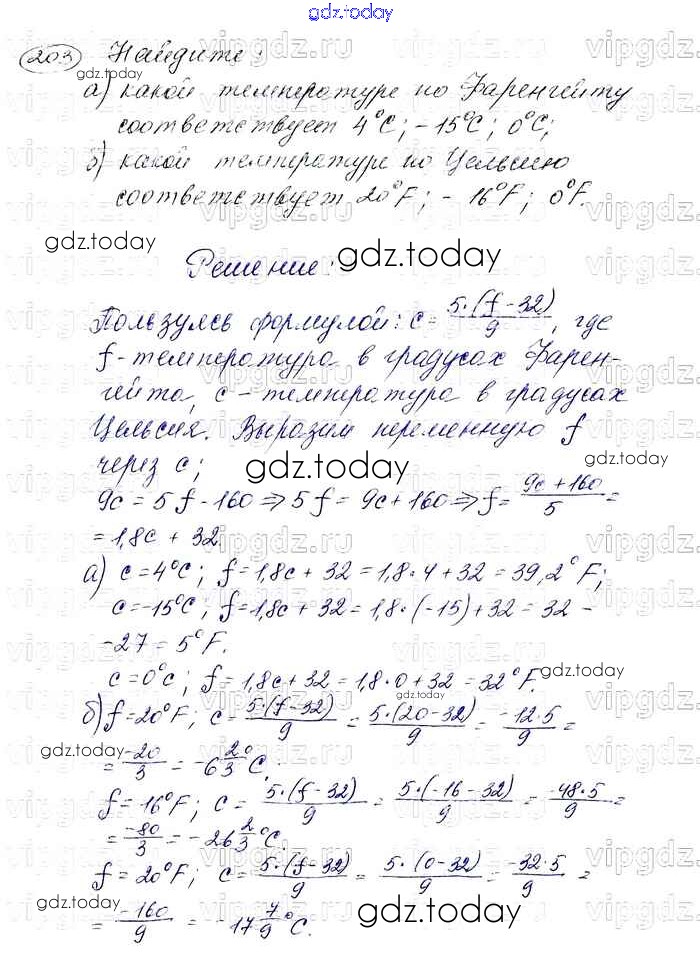 gdz.today
203 Найдите:
а) какой температуре по Фаренгейту
соответствует 4°C; -15°C; 0°C;
б) какой температуре по Цельсию
соответствует 20°F; -16°F; 0°F.
gdz.today
Решение: gdz.today
Пользуясь формулой: c = 5·(f-32)/9, где
f - температура в градусах Фарен-
гейта, c - температура в градусах
Цельсия. Выразим переменную f
через c;
gdz.today
9c = 5f - 160 ⇒ 5f = 9c + 160 ⇒ f = 9c + 160/5 =
= 1,8c + 32.
а) c = 4°C; f = 1,8c + 32 = 1,8·4 + 32 = 39,2°F;
c = -15°C; f = 1,8c + 32 = 1,8·(-15) + 32 = 32 -
- 27 = 5°F.
c = 0°c; f = 1,8c + 32 = 1,8·0 + 32 = 32°F.
gdz.today
б) f = 20°F; c = 5·(f-32)/9 = 5·(20-32)/9 = -12·5/9 =
= -20/3 = -6 2/3 °C.
gdz.today
f = -16°F; c = 5·(f-32)/9 = 5·(-16-32)/9 = -48·5/9 =
= -80/3 = -26 2/3 °C.
f = 20°F; c = 5·(f-32)/9 = 5·(0-32)/9 = -32·5/9 =
= -160/9 = -17 7/9 °C.
gdz.today